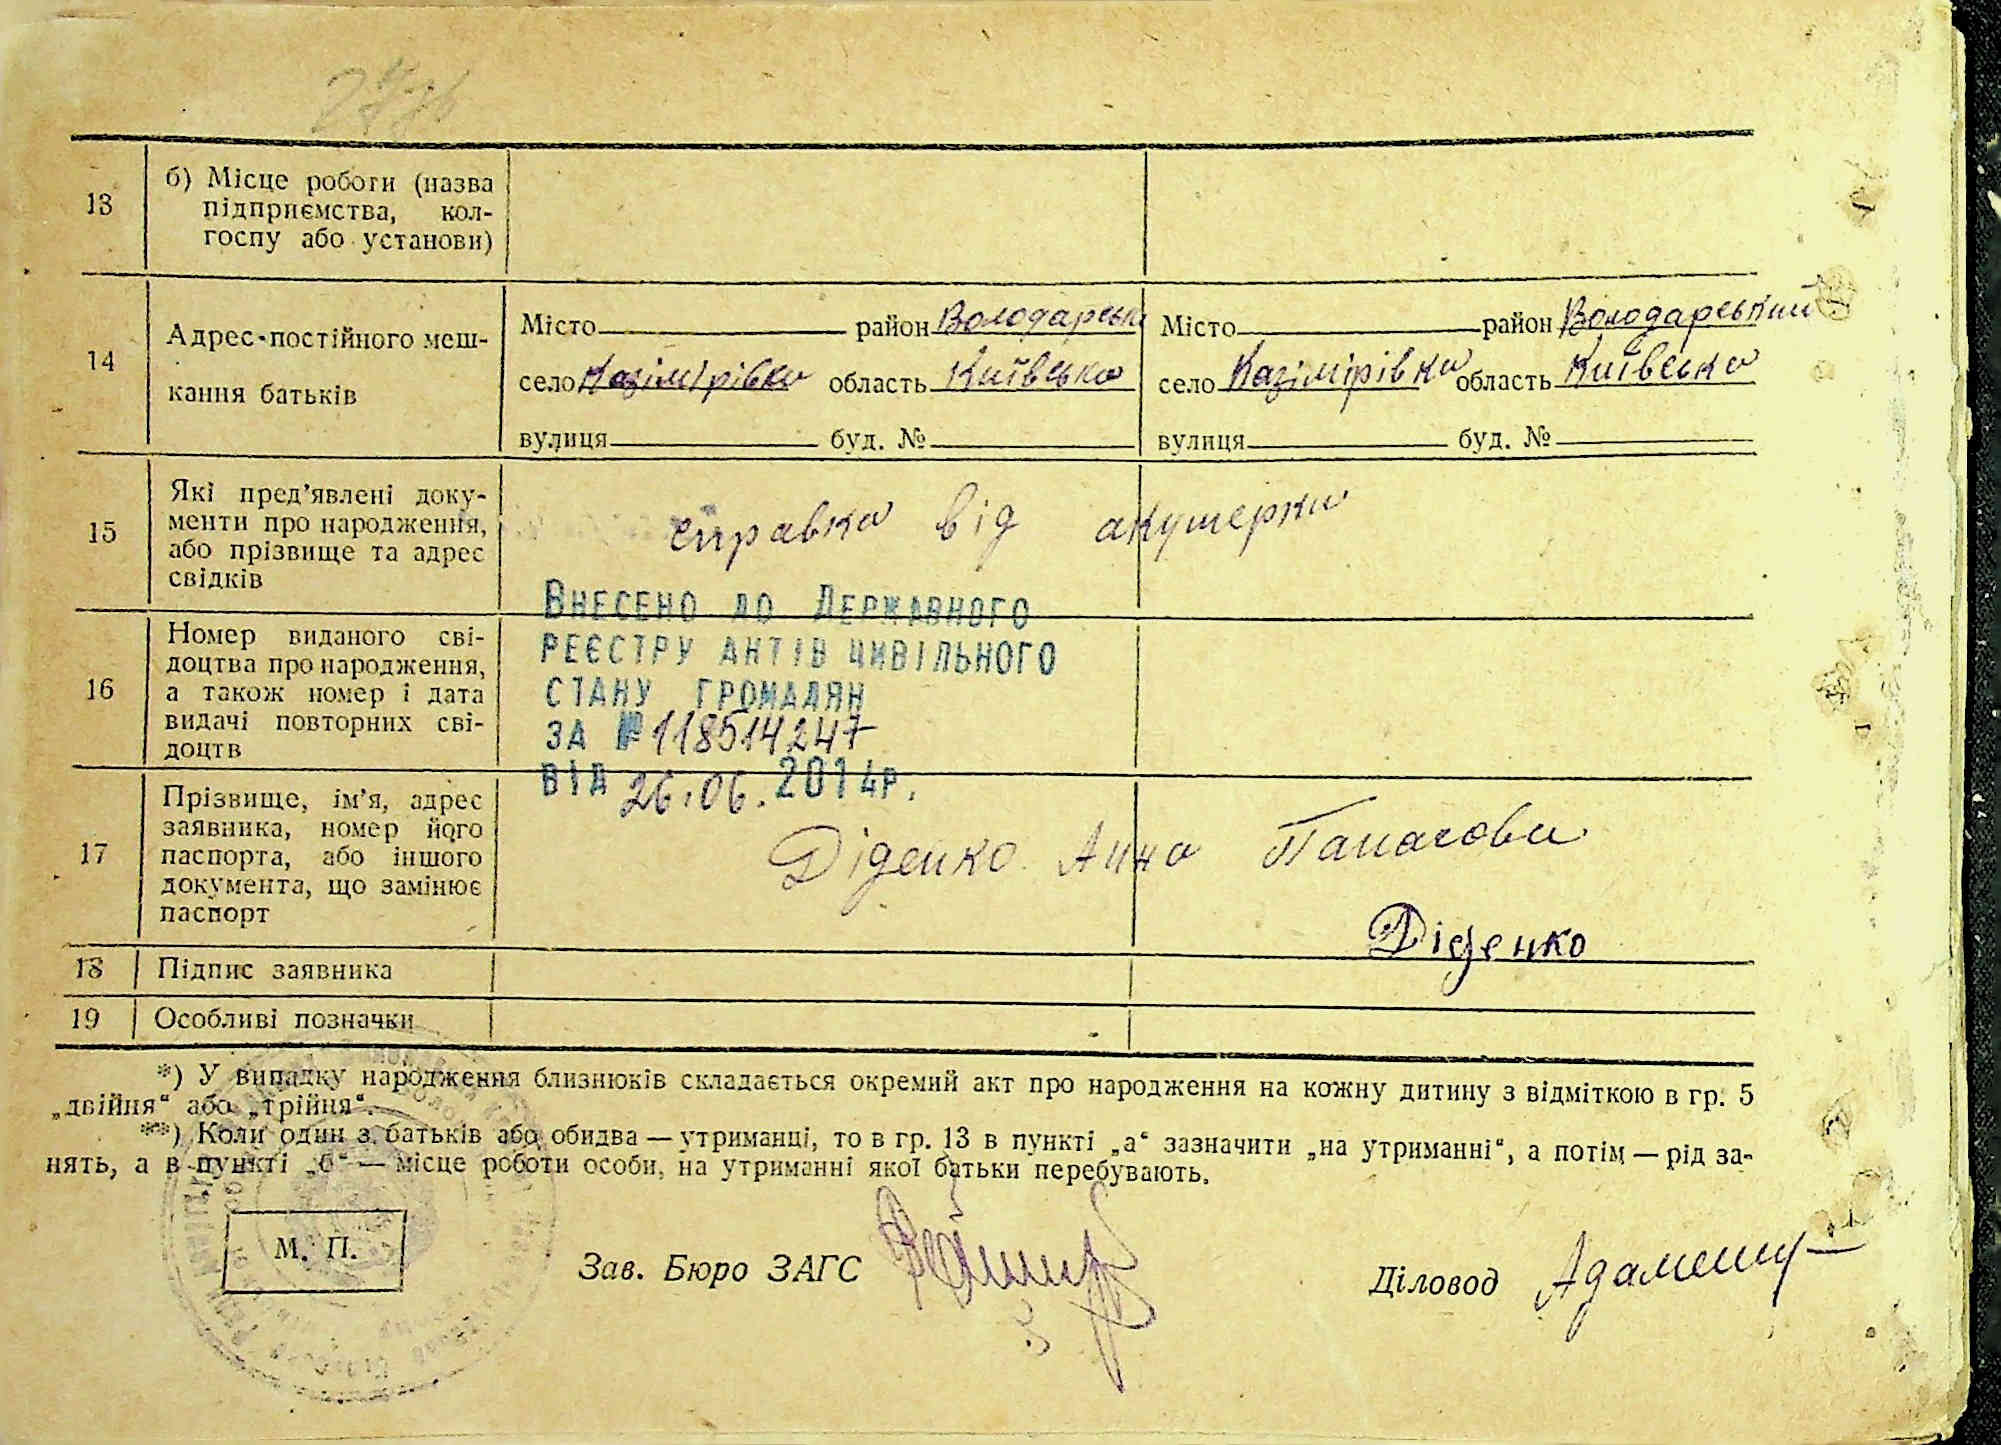 13
б) Місце роботи (назва
підприємства, кол-
госпу або установи)
14
Адрес постійного меш-
кання батьків
Місто район Володарськ
село Казімірівка область Київська
вулиця буд. №
Місто район Володарський
село Казімірівка область Київська
вулиця буд. №
15
Які пред'явлені доку-
менти про народження,
або прізвище та адрес
свідків
справка від акушерки
16
Номер виданого сві-
доцтва про народження,
а також номер і дата
видачі повторних сві-
доцтв
Внесено до Державного
реєстру актів цивільного
стану громадян
за №118514247
від 26.06.2014р.
17
Прізвище, ім'я, адрес
заявника, номер його
паспорта, або іншого
документа, що замінює
паспорт
Діденко Анна Панасови
Діденко
18
Підпис заявника
19
Особливі позначки
*) У випадку народження близнюків складається окремий акт про народження на кожну дитину з відміткою в гр. 5
„двійня“ або „трійня“.
**) Коли один з батьків або обидва — утриманці, то в гр. 13 в пункті „а“ зазначити „на утриманні“, а потім — рід за-
нять, а в пункті „б“ — місце роботи особи, на утриманні якої батьки перебувають.
М. П.
Зав. Бюро ЗАГС
Діловод